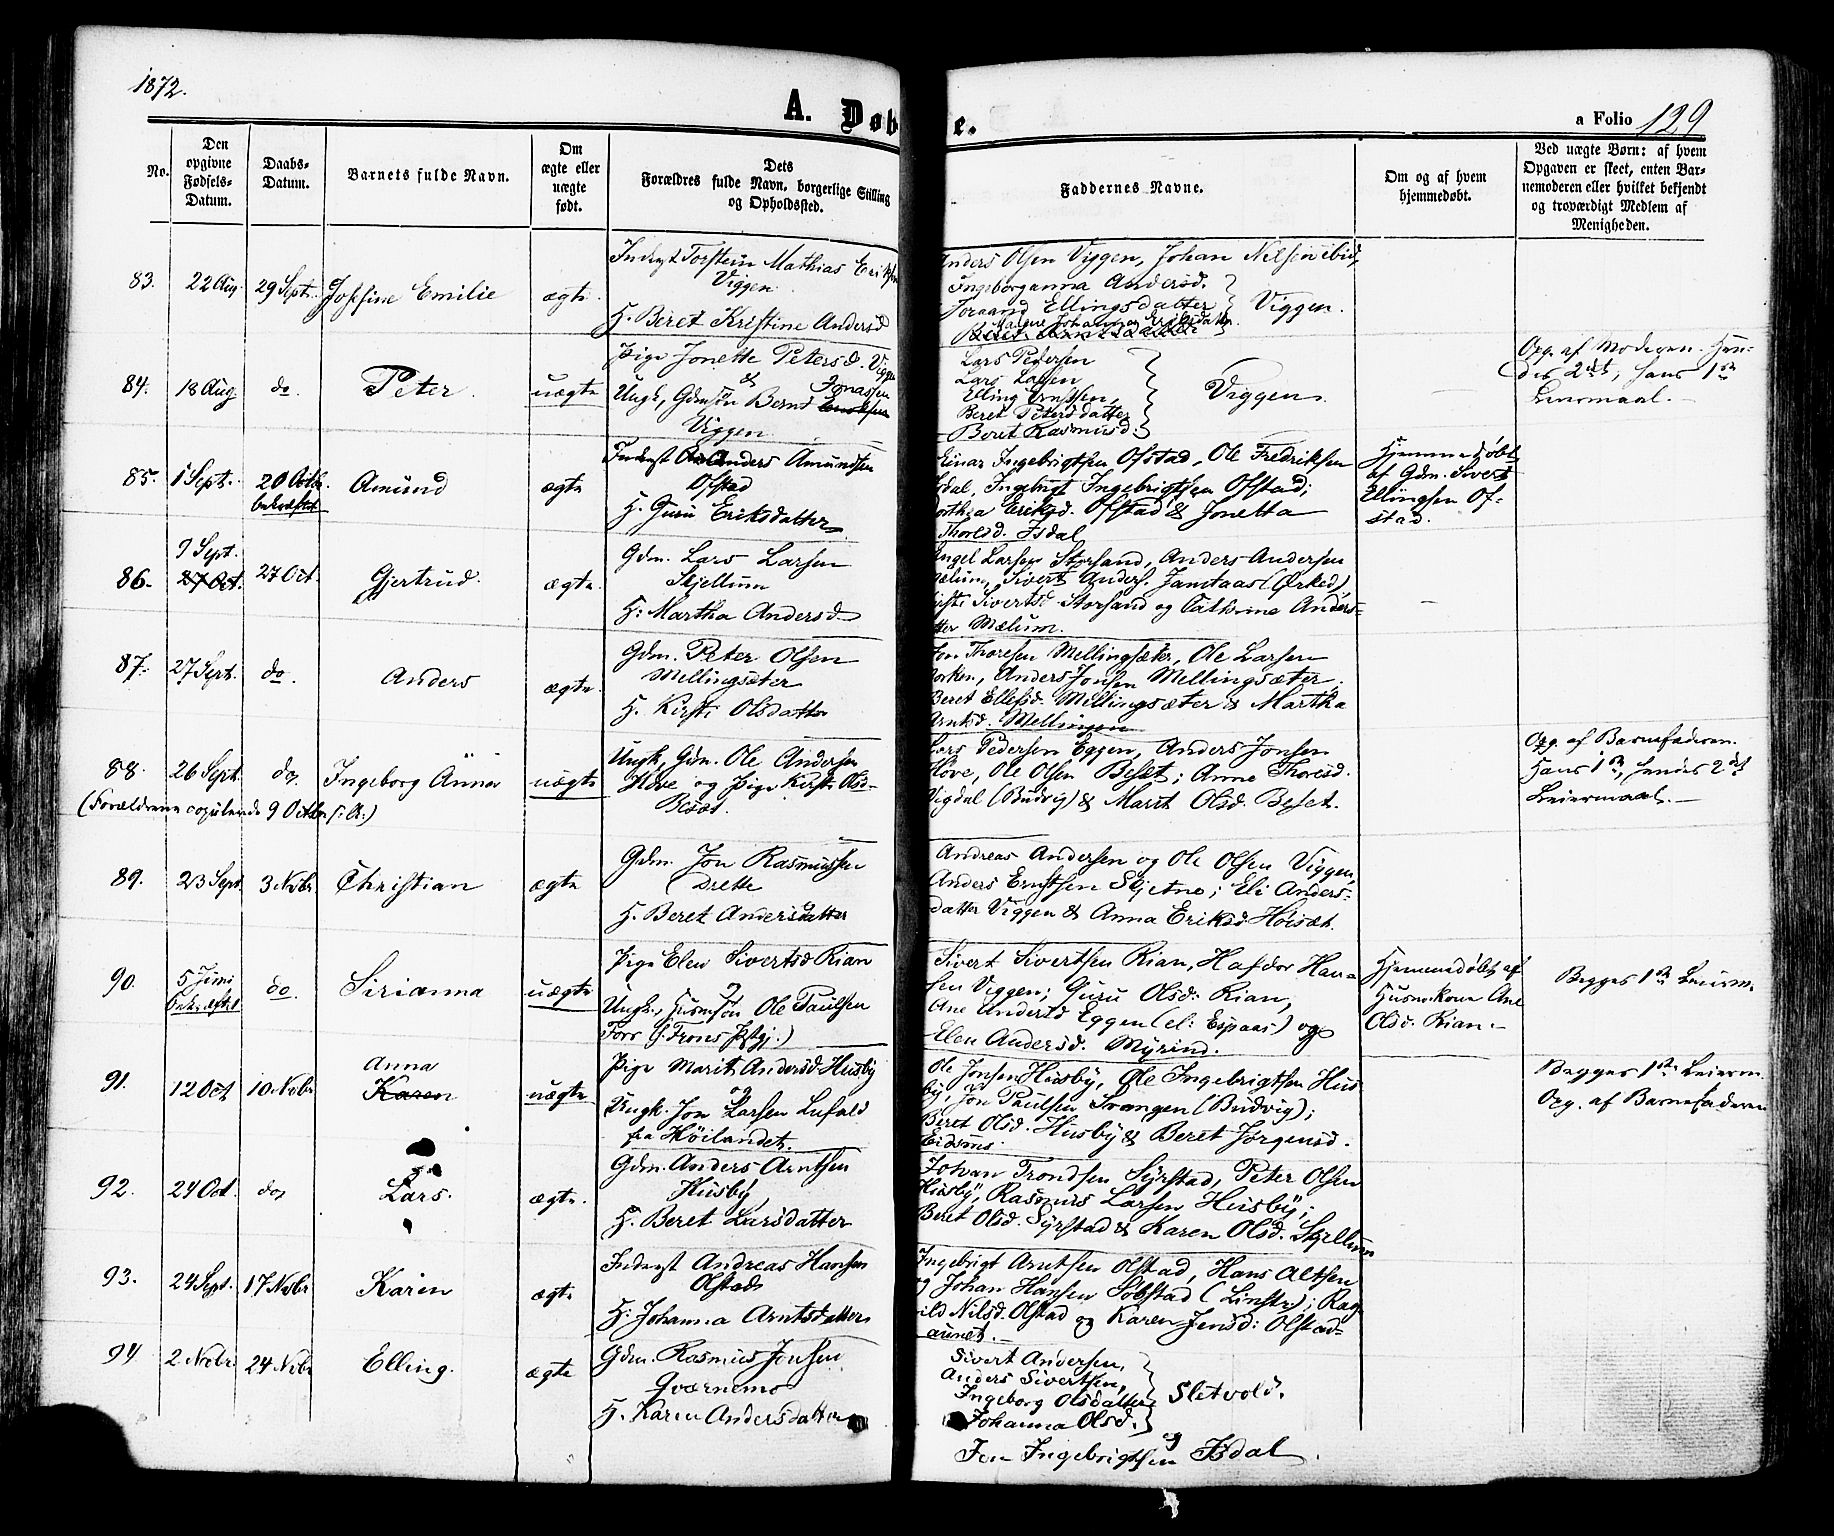 1872.
A. Døb e.
a Folio 129
No.
Den opgivne Fødsels-Datum.
Daabs-Datum.
Barnets fulde Navn.
Om ægte eller uægte født.
Dets Forældres fulde Navn, borgerlige Stilling og Opholdssted.
Faddernes Navne.
Om og af hvem hjemmedøbt.
Ved uægte Børn: af hvem Opgaven er skeet, enten Barnemoderen eller hvilket bekjendt og troværdigt Medlem af Menigheden.
83. 22 Aug. 29 Sept. Josefine Emilie ægte
Inderst Torstein Mathias Eriksen
Viggen
H. Beret Kristine Andersd
Anders Olsen Viggen, Johan Nilsen ibid,
Ingeborganna Andersd.
Joraand Ellingsdatter Viggen.
84. 18 Aug. do. Peter. uægte
Pige Jonette Petersd. Vigge
&
Ungk, Gdmsøn Bernt Jonassen
Viggen
Lars Pedersen
Lars Larsen
Elling Arntsen, Viggen.
Beret Petersdatter
Beret Rasmusd.
Opg. af Moderen. Hen-
des 2det, hans 1ste
Leiermaal.
85. 1 Sept. 20 Octbr. bekræftet Amund ægte
Inderst Anders Amundsen
Ofstad
H. Guru Eriksdatter
Einar Ingebrigtsen Ofstad, Ole Fredriksen
Isdal, Ingebrigt Ingebrigtsen Ofstad;
Eriksd. Ofstad & Jonetta
Thoresd. Isdal
Hjemmedøbt
af Gdm. Sivert
Ellingsen Of-
stad.
9 Sept.
86. 27 Oct. 27 Oct. Gjertrud. ægte
Gdm. Lars Larsen
Skjellum
H: Martha Andersd
Engel Larsen Storsand, Anders Andersen
Mælum, Sivert Anders. Jamtaas (Ørked),
Sivertsd. Storsand og Cathrine Anders-
tter Mælum.
87. 27 Sept. do. Anders ægte
Gdm. Peter Olsen
Mellingsæter
H. Kirsti Olsdatter
Jon Thoresen Mellingsæter, Ole Larsen
Anders Jonsen Mellingsæter,
Beret Ellefsd. Mellingsæter & Martha
Arntsd. Mellingen
88. 26 Sept. do. Ingeborg Anna uægte
(Forældrene copulerede 9 Octbr. s: A:)
Ungk, Gdm. Ole Andersen
Hove og Pige Kirsti Olsd-
Besæt.
Lars Pedersen Eggen, Anders Jonsen
Hove, Ole Olsen Beset; Anne Thoresd.
Vigdal (Budvig) & Marit Olsd. Beset.
Opg. af Barnefaderen.
Hans 1ste, hendes 2det
Leiermaal.
89. 23 Sept. 3 Novbr. Christian ægte
Gdm. Jon Rasmussen
Drette
H. Beret Andersdatter
Andreas Andersen og Ole Olsen Viggen,
Anders Erntsen Skjetne; Eli Anders-
datter Viggen & Anna Eriksd. Høisæt.
90. 5 Juni bekræftet do. Sirianna uægte
Pige Elen Sivertsd Rian
Ungk., Husmsøn Ole Paulsen
Foro
Sivert Sivertsen Rian, Hafdor Han-
sen Viggen; Guru Olsd. Rian,
Ane Andersd Eggen (el: Espaas) og
Elen Andersd. Myrind.
Hjemmedøbt af
Huusmskone Ane
Olsd. Rian.
Begges 1ste Leierm.
Anna
91. 12 Oct 10 Novbr Karen uægte
Pige Marit Andersd Husby
og
Ungk. Jon Larsen Lufald
fra Høilandet.
Ole Jonsen Husby, Ole Ingebrigtsen Hus
by, Jon Paulsen Svangen (Budvig);
Beret Olsd. Husby & Beret Jørgensd.
Eidsmo.
Begges 1ste Leierm.
Opg. af Barnefaderen
92. 24 Oct. do. Lars. ægte.
Gdm. Anders Arntsen
Husby
H. Beret Larsdatter
Johan Trondsen Syrstad, Peter Olsen
Husby, Rasmus Larsen Husby;
Beret Olsd. Syrstad & Karen Olsd. Skjellum
93. 24 Sept. 17 Novbr Karen ægte
Inderst Andreas Hansen
Olstad
H. Johanna Arntsdatter
Ingebrigt Arntsen Olstad, Hans Altsen
og Johan Hansen Solstad; Rag-
ild Nilsd. Olstad og Karen Jensd: Olstad-
aunet.
94 2 Novbr. 24 Novbr Elling. ægte
Gdm. Rasmus Jonsen
Qværnmo
H. Karen Andersdatter
Sivert Andersen,
Anders Sivertsen,
Ingeborg Olsdatter Sletvold.
Johanna Olsd.
og
Jon Ingebrigtsen Isdal.